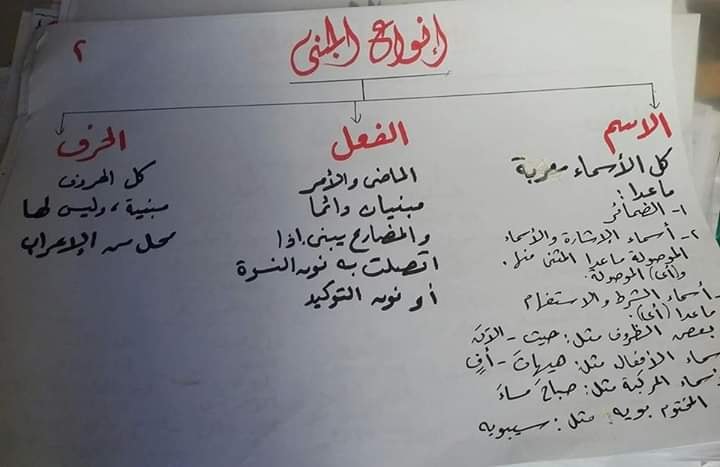 ٢
أنواع المبني
الاسم
كل الأسماء معربة
ماعدا:
١- الضمائر
٢- أسماء الإشارة والأسماء
الموصولة ماعدا المثنى منها.
و(أي) الموصولة.
- أسماء الشرط والاستفهام
ماعدا (أي).
بعض الظروف مثل: حيث - الآن
سماء الأفعال مثل: هيهات - أفٍ
سماء المركبة مثل: صباحَ مساءَ
المختوم بويه: مثل: سيبويه
الفعل
الماضى والأمر
مبنيان دائما
والمضارع يبنى إذا
اتصلت به نون النسوة
أو نون التوكيد
الحرف
كل الحروف
مبنية، وليس لها
محل من الإعراب